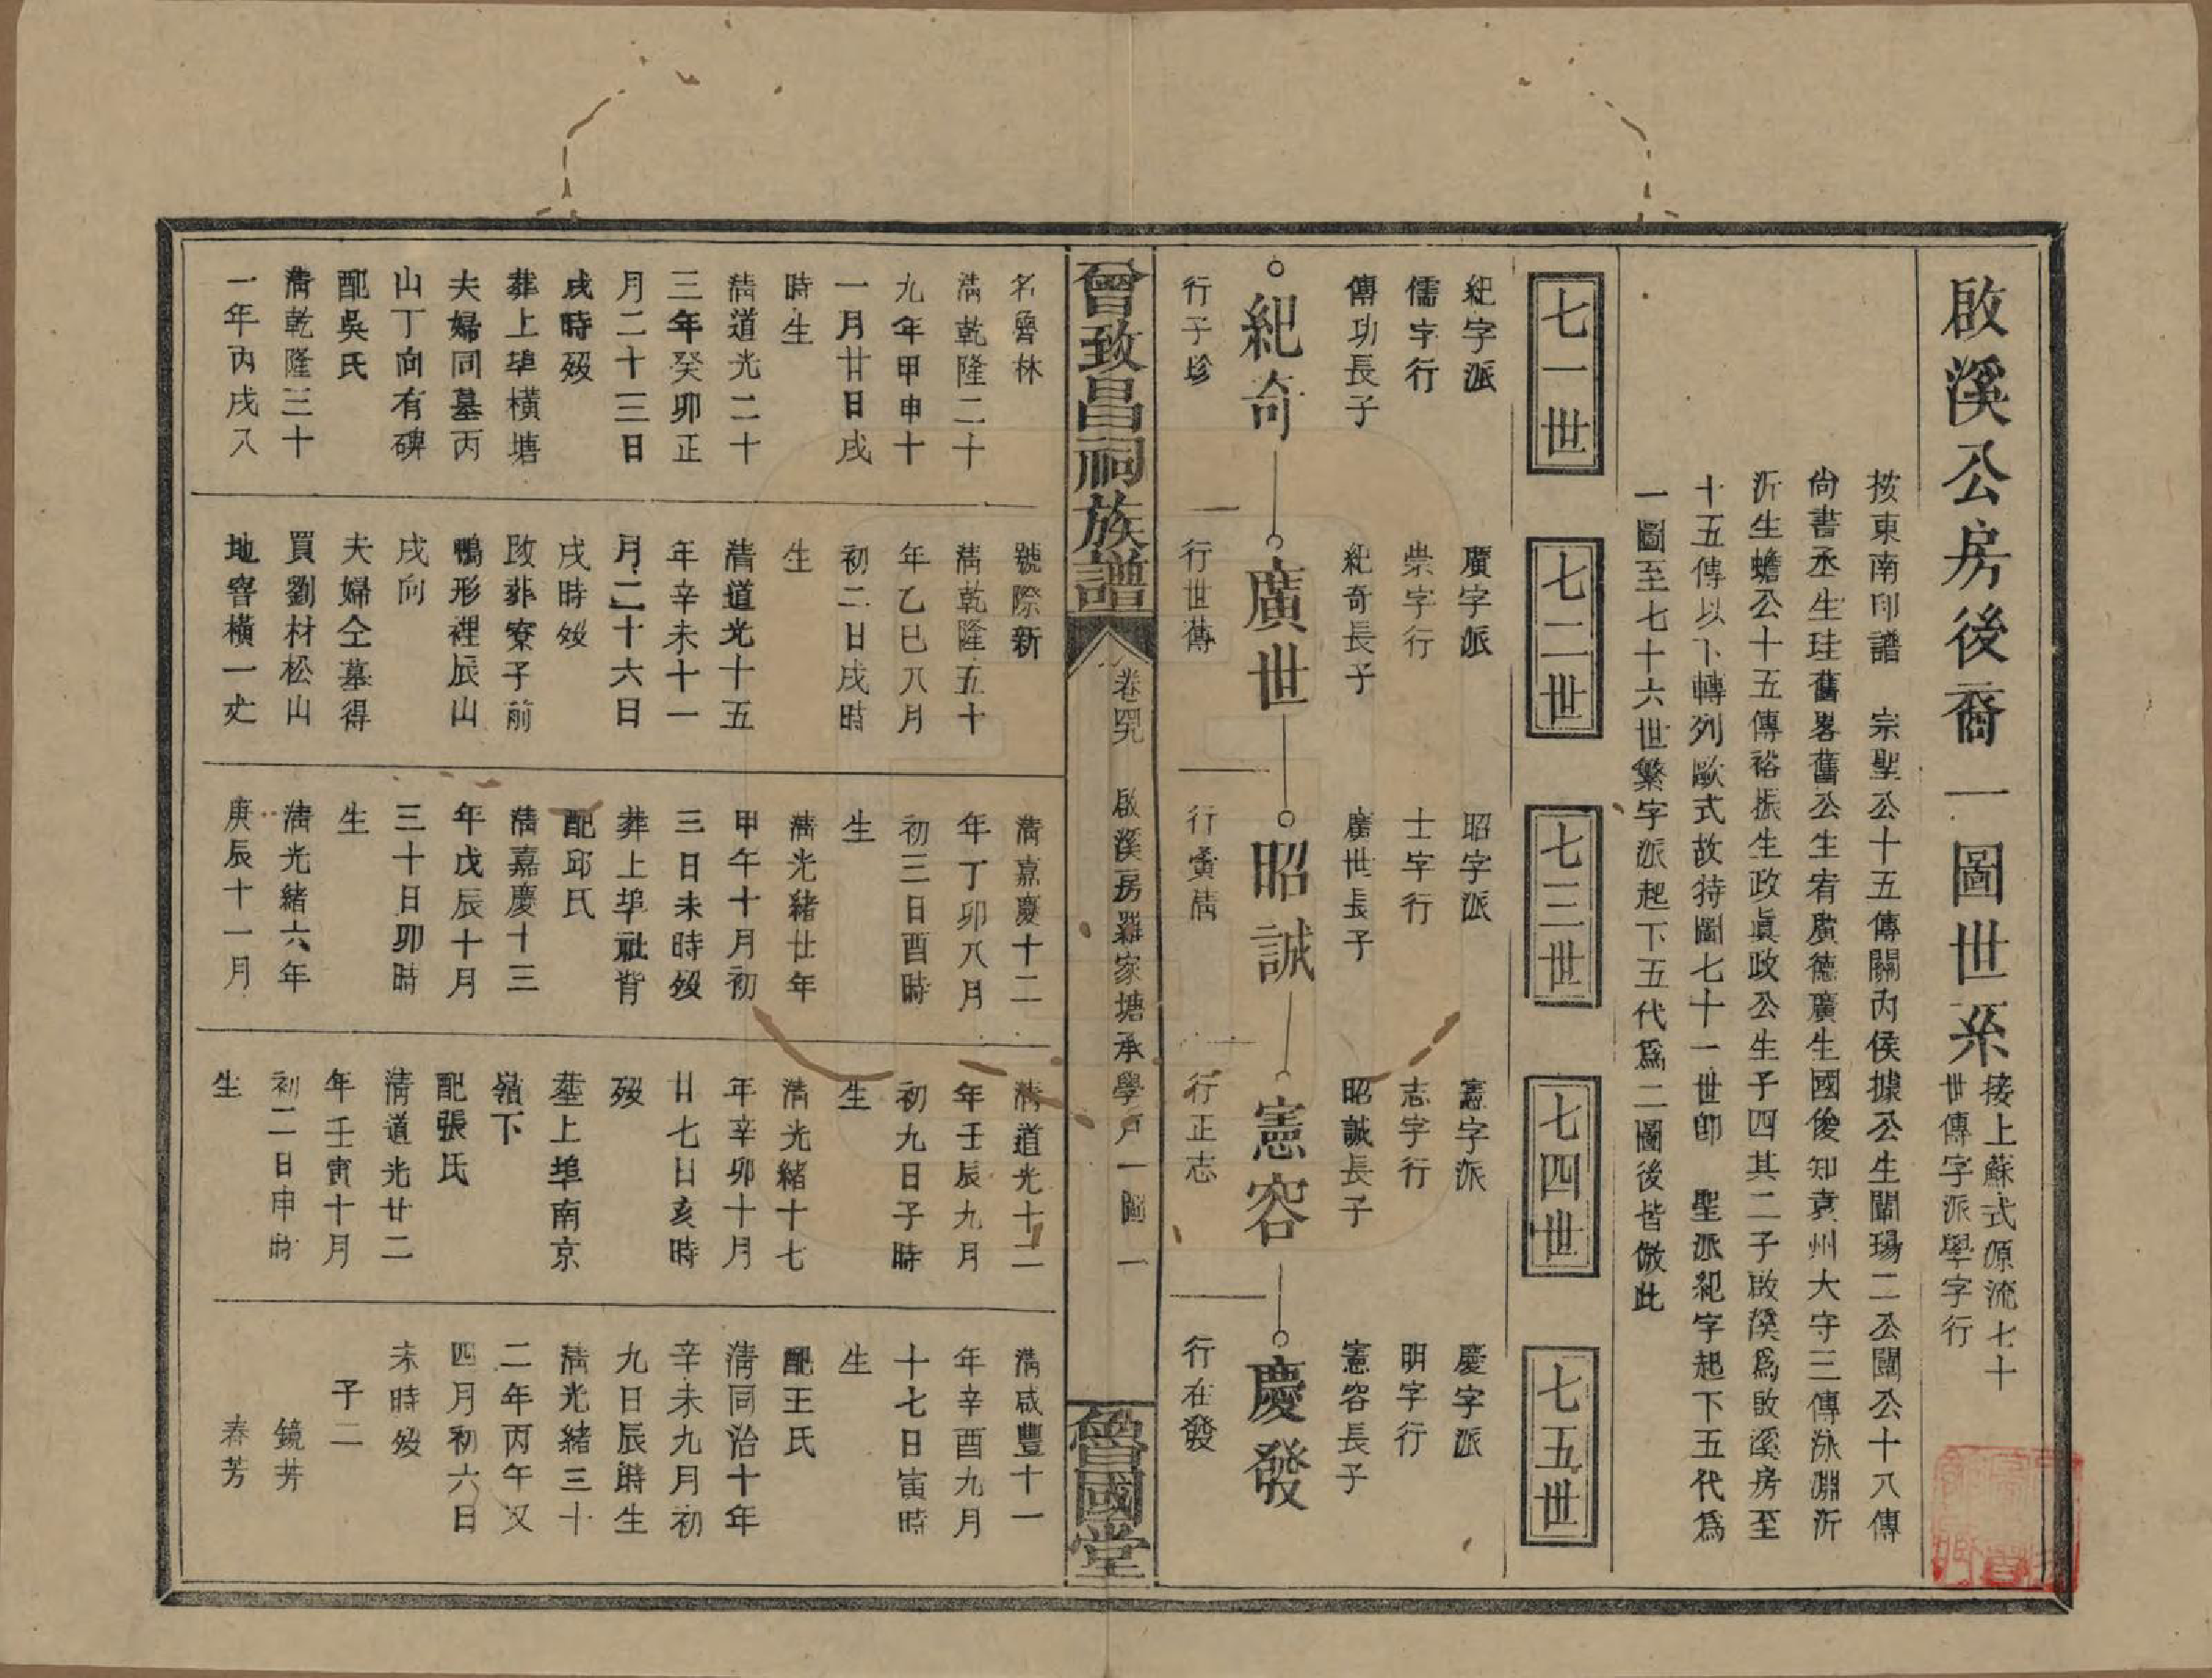 啟溪公房後裔一圖世系
接上蘇式源流七十
世傳字派學字行
按東南印譜　宗聖公十五傳關內侯據公生闡瑒二公闡公十八傳
尚書丞生珪舊畧舊公生宥廣德廣生國後知袁州大守三傳泳淵沂
沂生蟾公十五傳裕振生政眞政公生子四其二子啟溪爲啟溪房至
十五傳以下轉列歐式故特圖七十一世卽　聖派紀字起下五代爲
一圖至七十六世繁字派起下五代爲二圖後皆倣此
七一世
七二世
七三世
七四世
七五世
紀字派
儒字行
傳功長子
紀奇
行子珍
廣字派
崇字行
紀奇長子
廣世
行世傳
昭字派
士字行
廣世長子
昭誠
行賓倩
憲字派
志字行
昭誠長子
憲容
行正志
慶字派
明字行
憲容長子
慶發
行在發
曾致昌祠族譜
卷
啟溪房羅家塘承學戶一圖
一
魯國堂
名魯林
清乾隆二十
九年甲申十
一月廿日戌
時生
清道光二十
三年癸卯正
月二十三日
戌時歿
葬上埠橫塘
夫婦同墓丙
山丁向有碑
配吳氏
清乾隆三十
一年丙戌八
號際新
清乾隆五十
年乙巳八月
初二日戌時
生
清道光十五
年辛未十一
月二十六日
戌時歿
改葬寮子前
鴨形裡辰山
戌向
夫婦仝墓得
買劉材松山
地窨橫一丈
清嘉慶十二
年丁卯八月
初三日酉時
生
清光緒廿年
甲午十月初
三日未時歿
葬上埠祉背
配邱氏
清嘉慶十三
年戊辰十月
三十日卯時
生
清光緒六年
庚辰十一月
清道光十二
年壬辰九月
初九日子時
生
清光緒十七
年辛卯十月
廿七日亥時
歿
塟上埠南京
嶺下
配張氏
清道光廿二
年壬寅十月
初二日申時
生
清咸豐十一
年辛酉九月
十七日寅時
生
配王氏
清同治十年
辛未九月初
九日辰時生
清光緒三十
二年丙午又
四月初六日
未時歿
子二
鏡芳
春芳